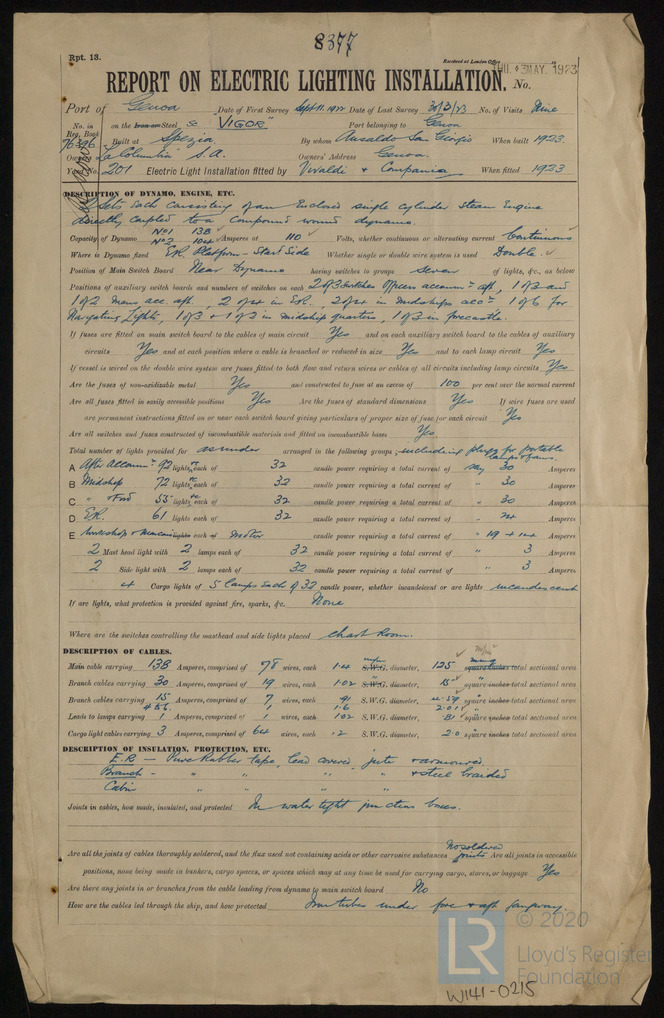 8377
Rpt. 13.
Received at London Office
THU. 3 MAY. 1923
REPORT ON ELECTRIC LIGHTING INSTALLATION. No.
Port of Genoa Date of First Survey Sept 11. 1922 Date of Last Survey 30/3/23 No. of Visits Nine
No. in Reg. Book on the Iron or Steel S.S. "VIGOR" Port belonging to Genoa
76396 Built at Spezia By whom Ansaldo San Giorgio When built 1923
Owners La Columbia S.A. Owners' Address Genoa.
Yard No. 201 Electric Light Installation fitted by Vivaldi & Compania When fitted 1923
DESCRIPTION OF DYNAMO, ENGINE, ETC.
2 Sets each consisting of an Enclosed single cylinder steam Engine
directly coupled to a compound wound dynamo.
Capacity of Dynamo No 1 138 No 2 104 Amperes at 110 Volts, whether continuous or alternating current Continuous
Where is Dynamo fixed E.R. Platform - Starbd Side Whether single or double wire system is used Double
Position of Main Switch Board Near Dynamo having switches to groups seven of lights, &c., as below
Positions of auxiliary switch boards and numbers of switches on each 2 of 3 switches officers accommn aft, 1 of 3 and
1 of 2 mens acc. aft. 2 of 4 in E.R. 2 of 4 in midships accn 1 of 6 for
Navigating Lights, 1 of 3 + 1 of 2 in midship quarters, 1 of 3 in forecastle.
If fuses are fitted on main switch board to the cables of main circuit Yes and on each auxiliary switch board to the cables of auxiliary
circuits Yes and at each position where a cable is branched or reduced in size Yes and to each lamp circuit Yes
If vessel is wired on the double wire system are fuses fitted to both flow and return wires or cables of all circuits including lamp circuits Yes
Are the fuses of non-oxidizable metal Yes and constructed to fuse at an excess of 100 per cent over the normal current
Are all fuses fitted in easily accessible positions Yes Are the fuses of standard dimensions Yes If wire fuses are used
are permanent instructions fitted on or near each switch board giving particulars of proper size of fuse for each circuit Yes
Are all switches and fuses constructed of incombustible materials and fitted on incombustible bases Yes.
Total number of lights provided for as under arranged in the following groups; including plugs for portable lamps & fans.
A After Accomn 92 lights etc each of 32 candle power requiring a total current of say 30 Amperes
B Midship 72 lights etc each of 32 candle power requiring a total current of " 30 Amperes
C " & Ford 55 lights etc each of 32 candle power requiring a total current of " 30 Amperes
D E.R. 61 lights each of 32 candle power requiring a total current of " 24 Amperes
E Workshop & Marconi lights each of Motor candle power requiring a total current of " 19 + 14 Amperes
2 Mast head light with 2 lamps each of 32 candle power requiring a total current of " 3 Amperes
2 Side light with 2 lamps each of 32 candle power requiring a total current of " 3 Amperes
4 Cargo lights of 5 lamps each of 32 candle power, whether incandescent or arc lights incandescent
If arc lights, what protection is provided against fire, sparks, &c. None
Where are the switches controlling the masthead and side lights placed Chart Room.
DESCRIPTION OF CABLES.
Main cable carrying 138 Amperes, comprised of 78 wires, each 1.44 S.W.G. diameter, 125 square inches total sectional area
Branch cables carrying 30 Amperes, comprised of 19 wires, each 1.02 S.W.G. diameter, 15 square inches total sectional area
Branch cables carrying 15 Amperes, comprised of 7 wires, each .91 S.W.G. diameter, 4.59 square inches total sectional area
Leads to lamps carrying 1 Amperes, comprised of 1 wires, each 1.02 S.W.G. diameter, .81 square inches total sectional area
Cargo light cables carrying 3 Amperes, comprised of 64 wires, each .2 S.W.G. diameter, 2.0 square inches total sectional area
DESCRIPTION OF INSULATION, PROTECTION, ETC.
E.R - Pure Rubber tape, lead covered, jute & armoured.
Branch - " " " " & steel braided
Cabin " " "
Joints in cables, how made, insulated, and protected In water tight junction boxes.
Are all the joints of cables thoroughly soldered, and the flux used not containing acids or other corrosive substances No soldered joints Are all joints in accessible
positions, none being made in bunkers, cargo spaces, or spaces which may at any time be used for carrying cargo, stores, or baggage Yes
Are there any joints in or branches from the cable leading from dynamo to main switch board No
How are the cables led through the ship, and how protected Iron tubes under fore & aft gangway.
LR
© 2020
Lloyd's Register
Foundation
W141-0215